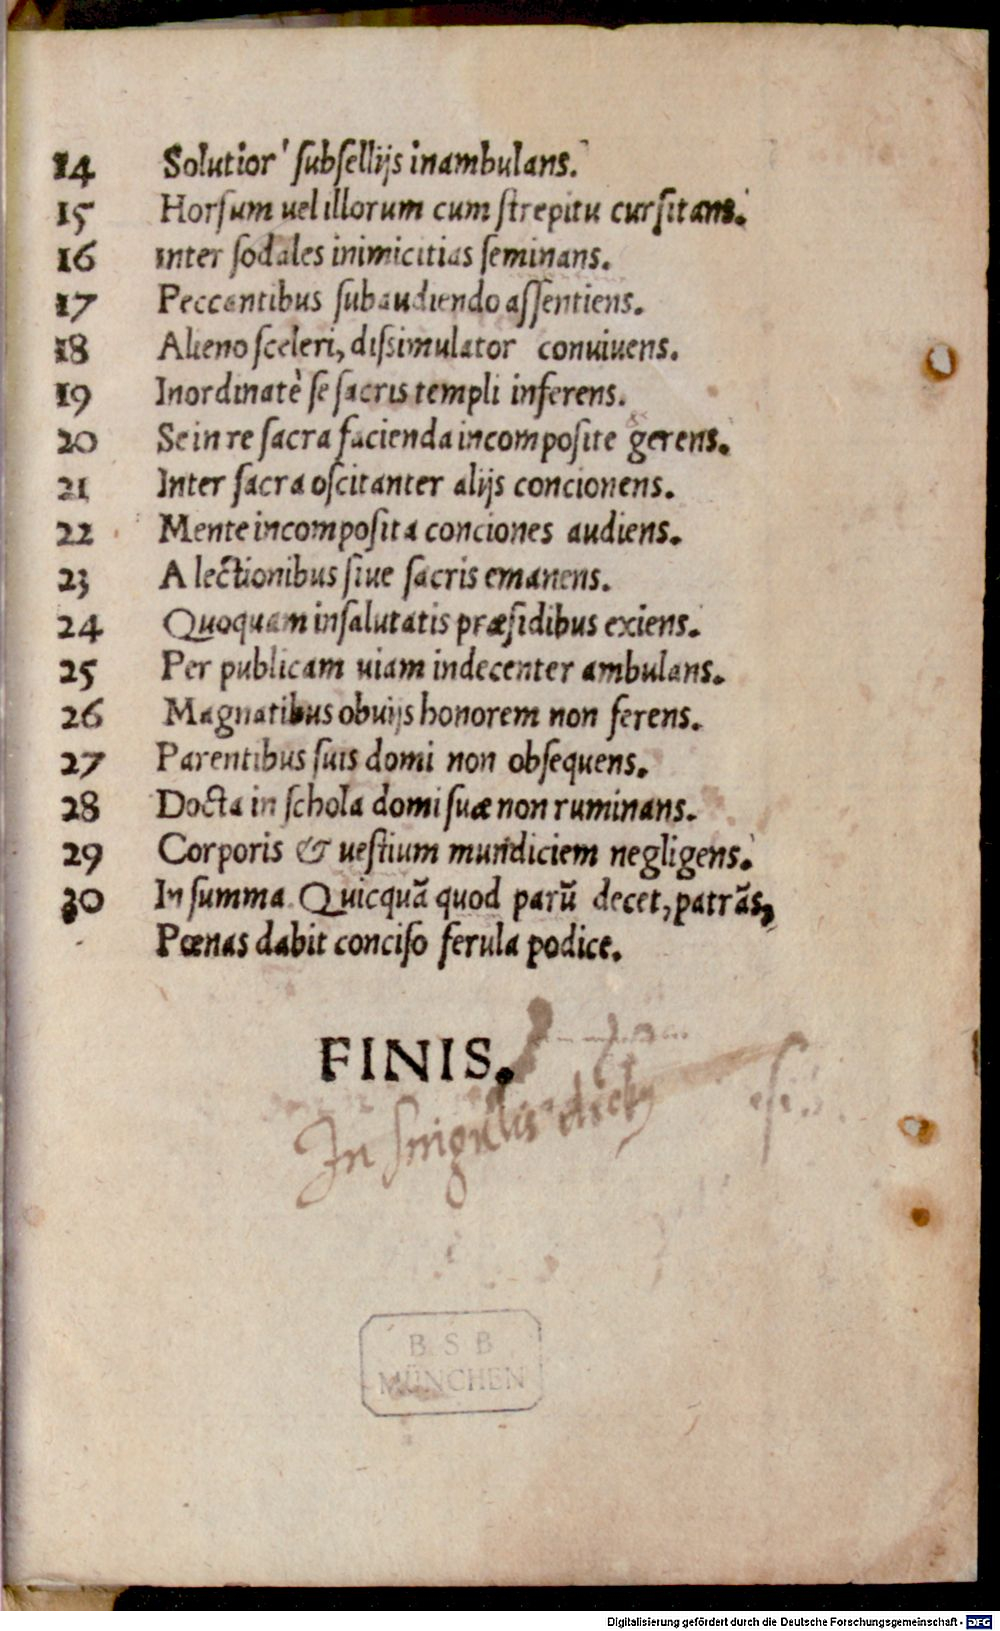 14 Solutior' subsellijs inambulans.
15 Horsum uel illorum cum strepitu cursitans.
16 Inter sodales inimicitias seminans.
17 Peccantibus subaudiendo assentiens.
18 Alieno sceleri, dissimulator conuiuens.
19 Inordinatè se sacris templi inferens.
20 Se in re sacra facienda incomposite gerens.
21 Inter sacra oscitanter alijs concionens.
22 Mente incomposita conciones audiens.
23 A lectionibus siue sacris emanens.
24 Quoquam insalutatis præsidibus exiens.
25 Per publicam uiam indecenter ambulans.
26 Magnatibus obuijs honorem non ferens.
27 Parentibus suis domi non obsequens.
28 Docta in schola domi suæ non ruminans.
29 Corporis & uestium mundiciem negligens.
30 In summa Quicquã quod parũ decet, patrãs,
Pœnas dabit conciso ferula podice.
FINIS.
In singulis
B S B
MÜNCHEN
Digitalisierung gefördert durch die Deutsche Forschungsgemeinschaft - DFG